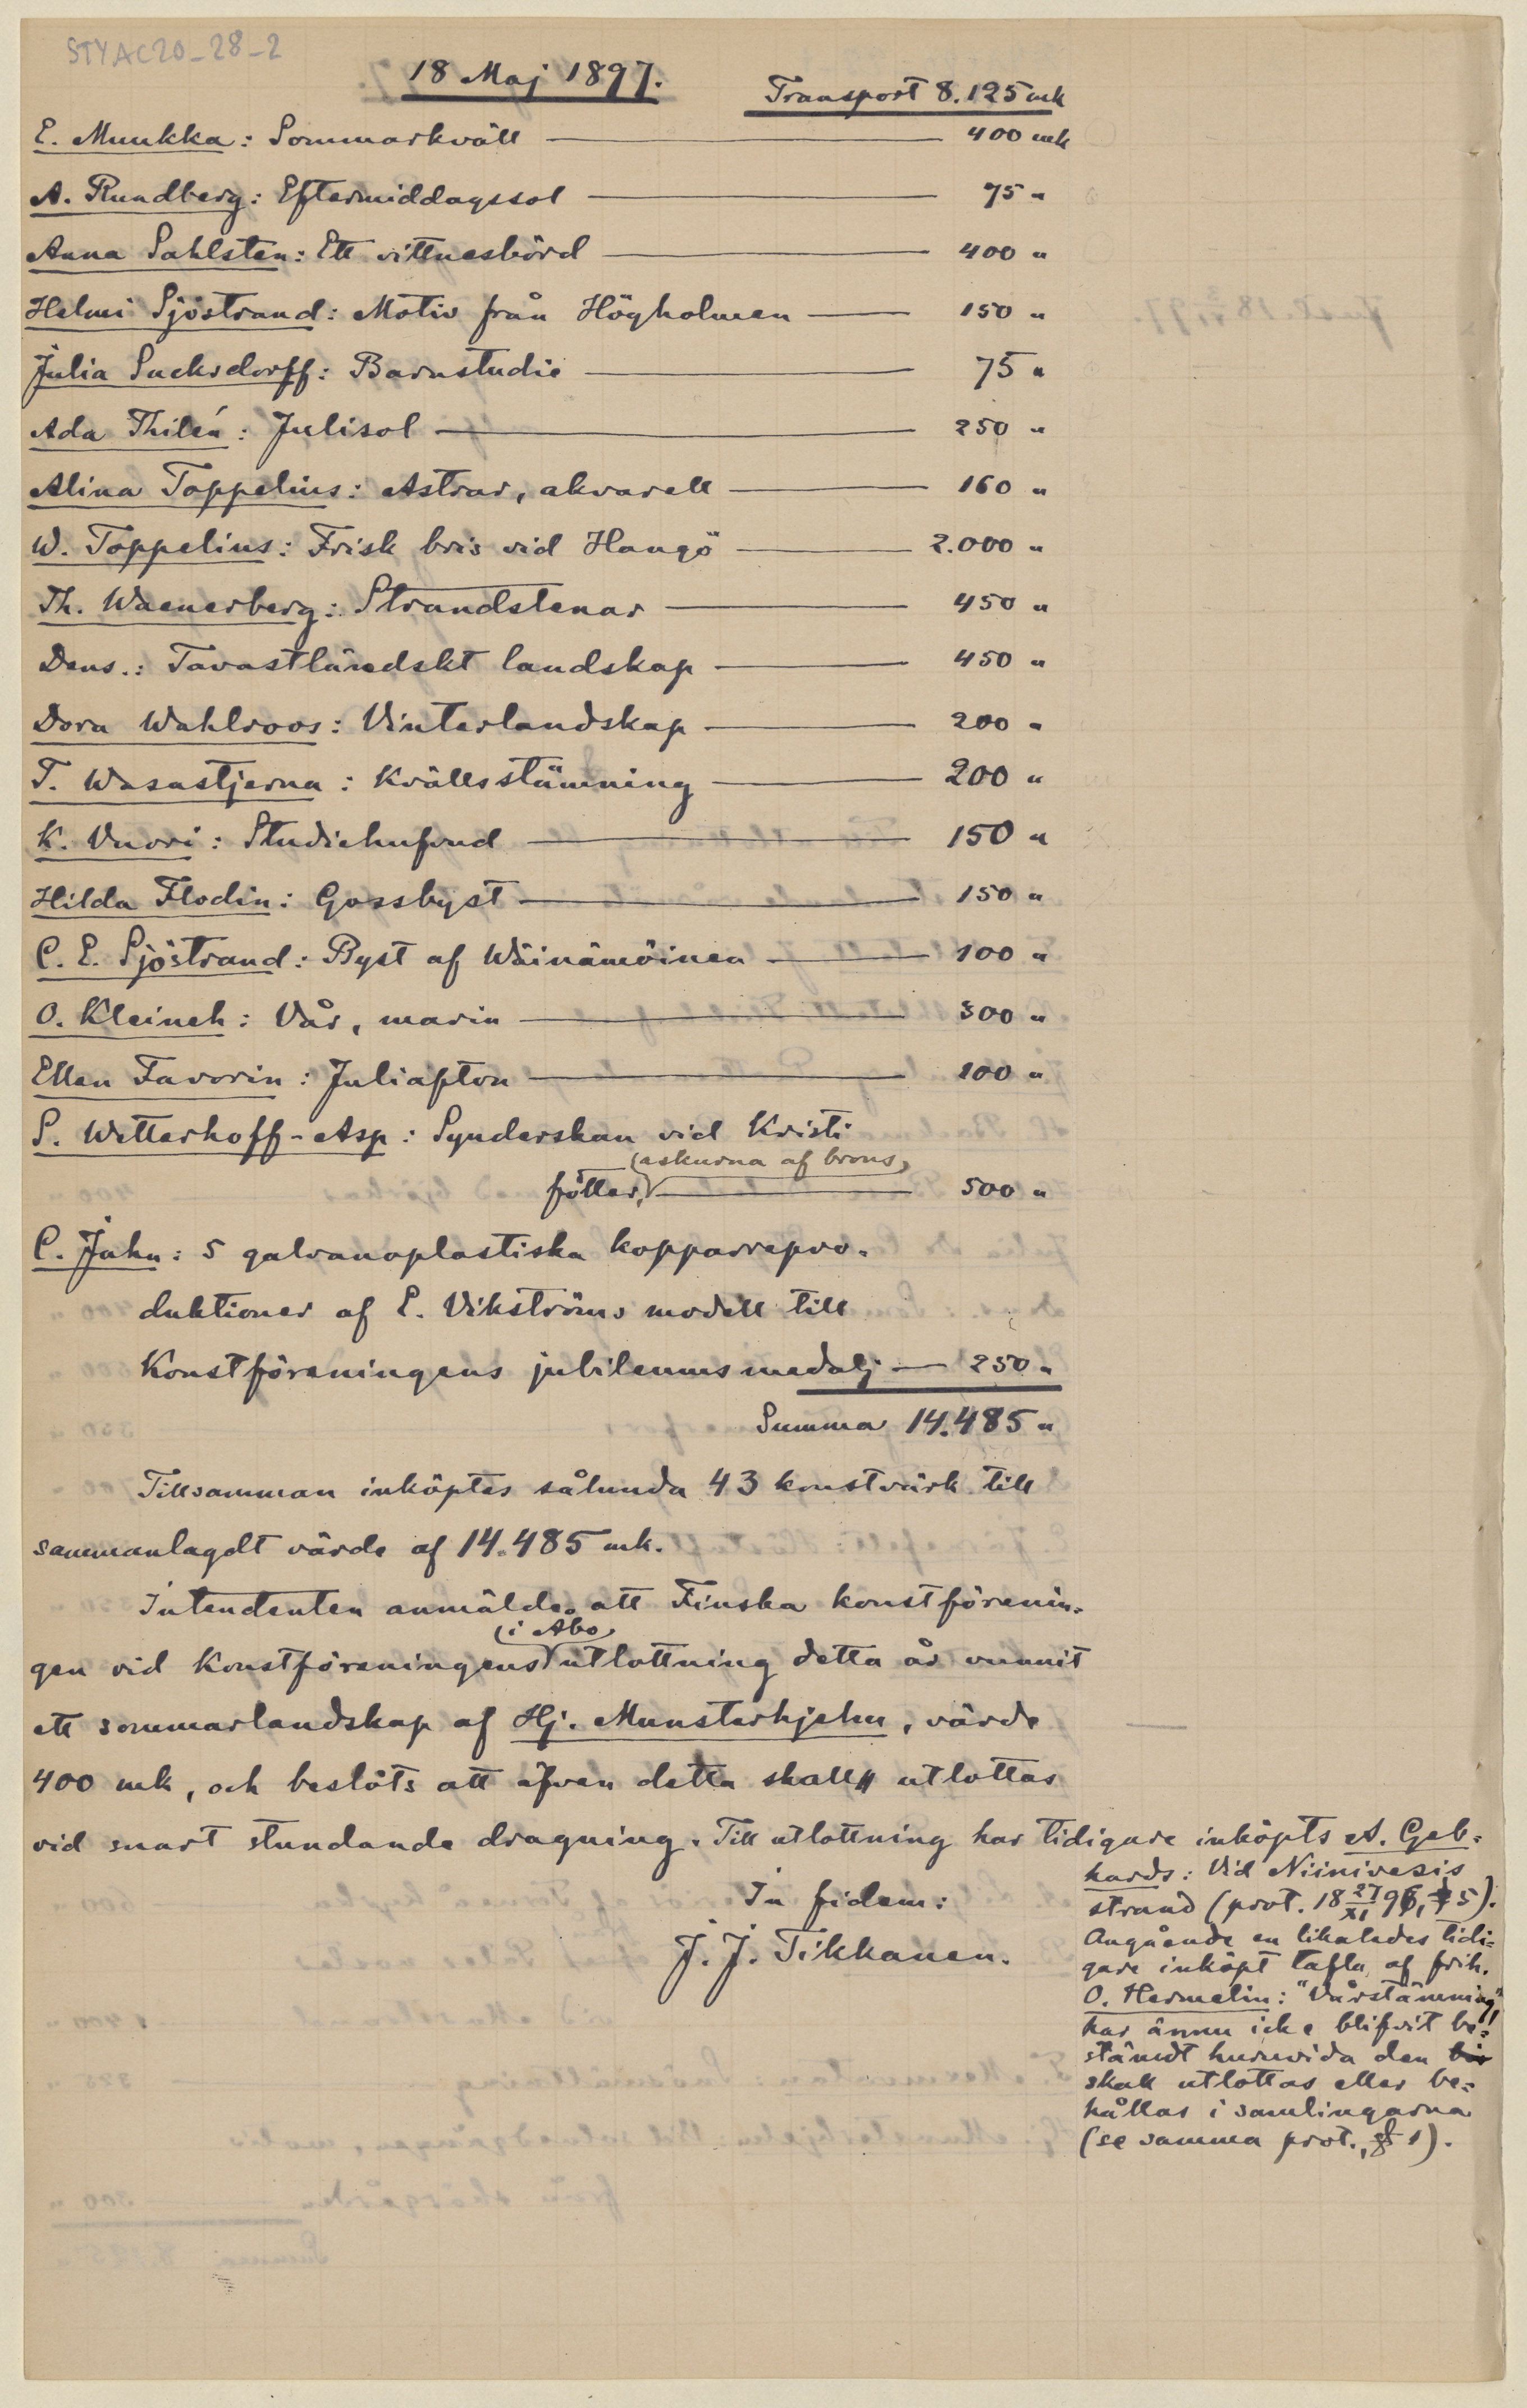 STYAC20_28_2
18 Maj 1897.
Transport 8.125 mk
E. Muukka: Sommarkväll — 400 mk
A. Rundberg: Eftermiddagssol — 75 "
Anna Sahlsten: Ett vittnesbörd — 400 "
Helmi Sjöstrand: Motiv från Högholmen — 150 "
Julia Sucksdorff: Barnstudie — 75 "
Ada Thilén: Julisol — 250 "
Alina Toppelius: Astrar, akvarell — 160 "
W. Toppelius: Frisk bris vid Hangö — 2.000 "
Th. Waenerberg: Strandstenar — 450 "
Dens.: Tavastländskt landskap — 450 "
Dora Wahlroos: Vinterlandskap — 200 "
T. Wasastjerna: Kvällsstämning — 200 "
K. Vuori: Studiehufvud — 150 "
Hilda Flodin: Gossbyst — 150 "
C. E. Sjöstrand: Byst af Wäinämöinen — 100 "
O. Kleineh: Vår, marin — 300 "
Ellen Favorin: Juliafton — 100 "
S. Wetterhoff-Asp: Synderskan vid Kristi
(askurna af brons)
fötter, — 500 "
C. Jahn: 5 galvanoplastiska kopparrepro-
duktioner af E. Vikströms modell till
Konstföreningens jubileumsmedalj — 250 "
Summa 14.485 "
Tillsamman inköptes sålunda 43 konstvärk till
sammanlagdt värde af 14.485 mk.
Intendenten anmälde att Finska konstförenin-
i Abo
gen vid Konstföreningens utlottning detta år vunnit
ett sommarlandskap af Hj. Munsterhjelm, värde
400 mk, och beslöts att äfven detta skall utlottas
vid snart stundande dragning. Till utlottning har tidigare inköpts A. Geb-
hards: Vid Niinivesis
strand (prot. 18 27/XI 96, § 5).
Angående en likaledes tidi-
gare inköpt tafla, af frih.
O. Hermelin: "Vårstämning"
har ännu icke blifvit be-
stämdt huruvida den
skall utlottas eller be-
hållas i samlingarna
(se samma prot., § 1).
In fidem:
J. J. Tikkanen.